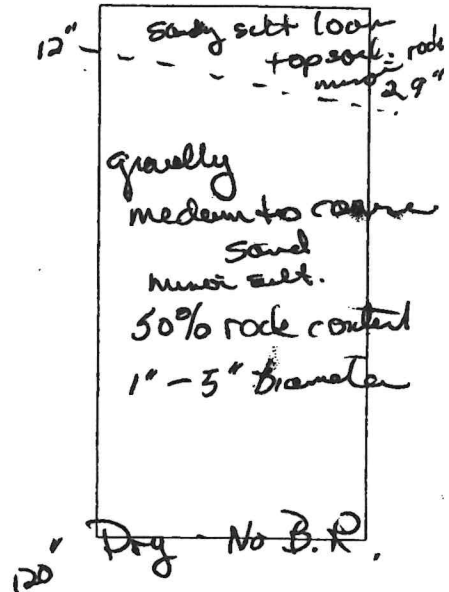 sandy silt loam
12" topsoil. rock
minor 29"
gravelly
medium to coarse
sand
minor silt.
50% rock content
1" - 5" Diameter
Dry - No B.R.
120"